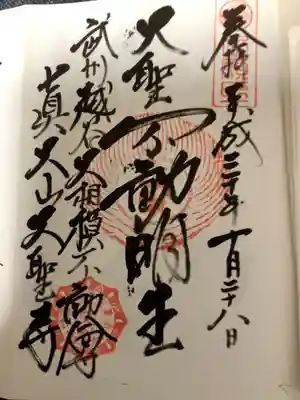 奉拝 平成三十年 十月二十八日
大聖不動明王
武州越谷大相模不動尊
真大山大聖寺